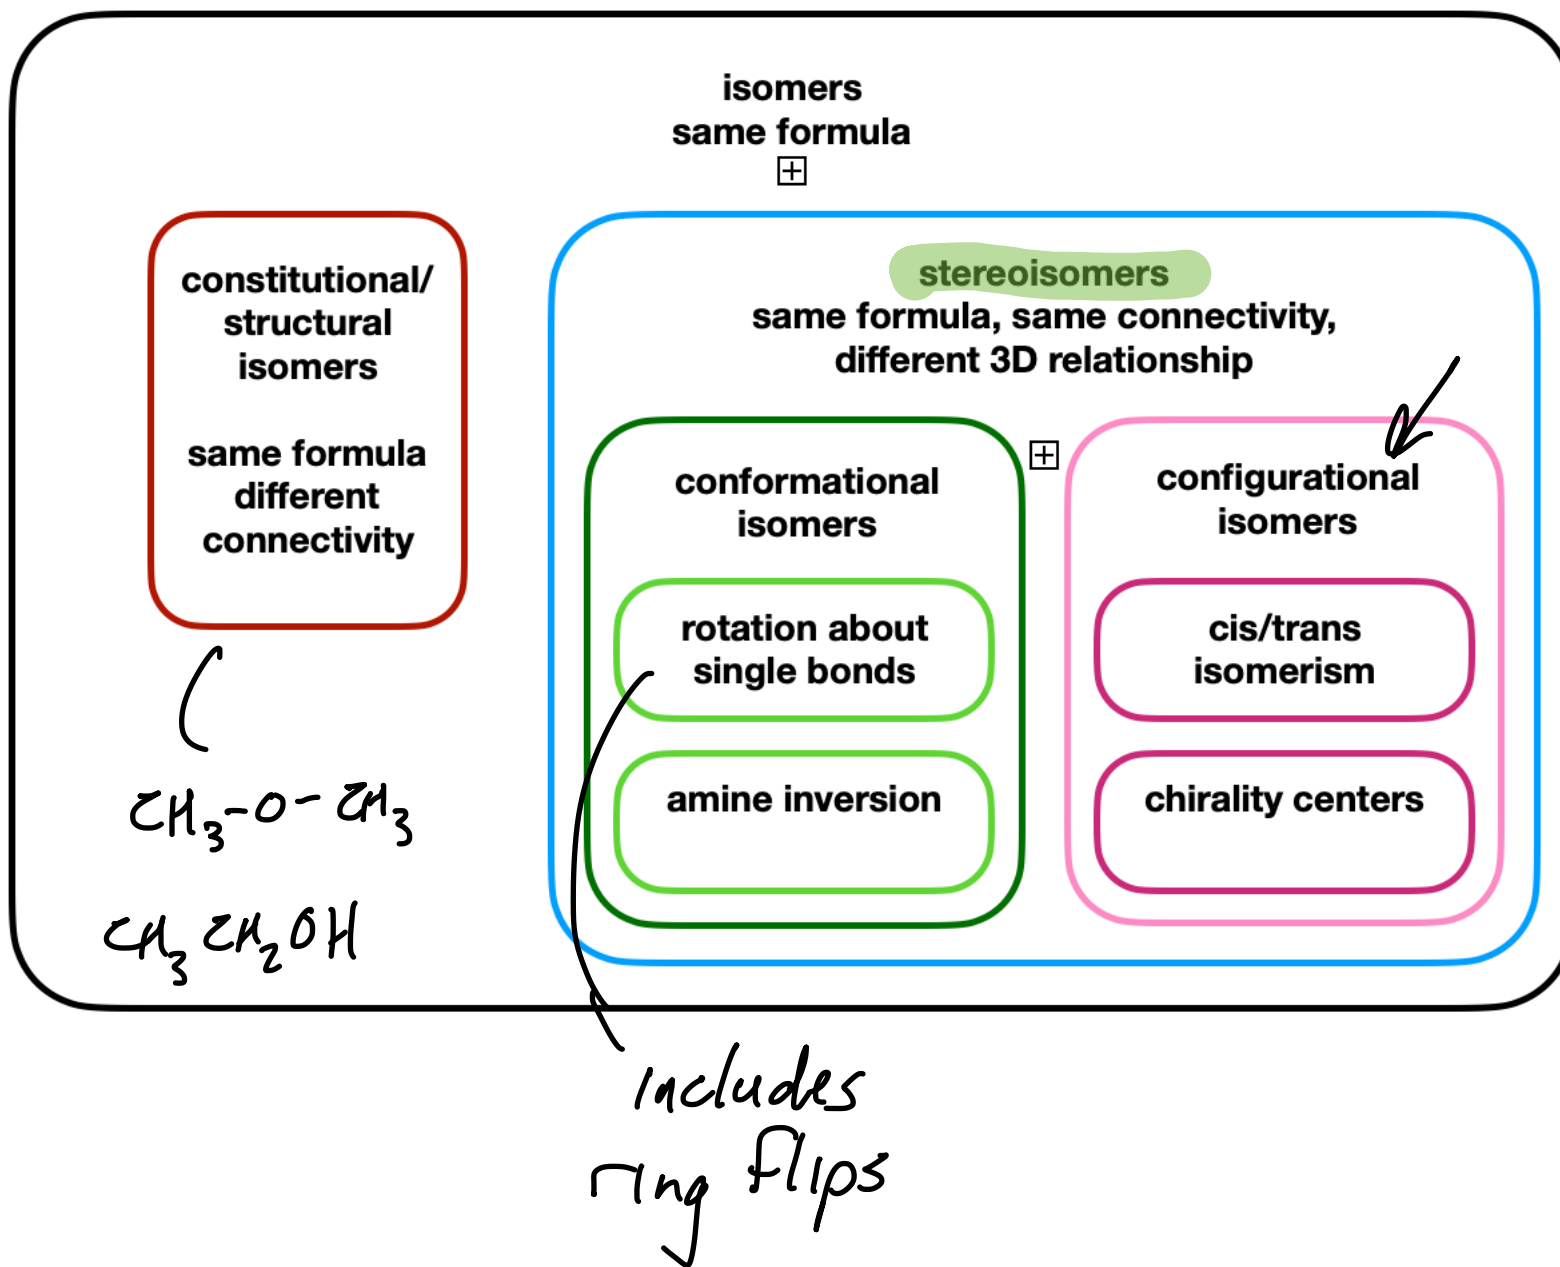 isomers
same formula
constitutional/
structural
isomers
same formula
different
connectivity
stereoisomers
same formula, same connectivity,
different 3D relationship
conformational
isomers
rotation about
single bonds
amine inversion
configurational
isomers
cis/trans
isomerism
chirality centers
CH₃-O-CH₃
CH₃CH₂OH
includes
ring flips